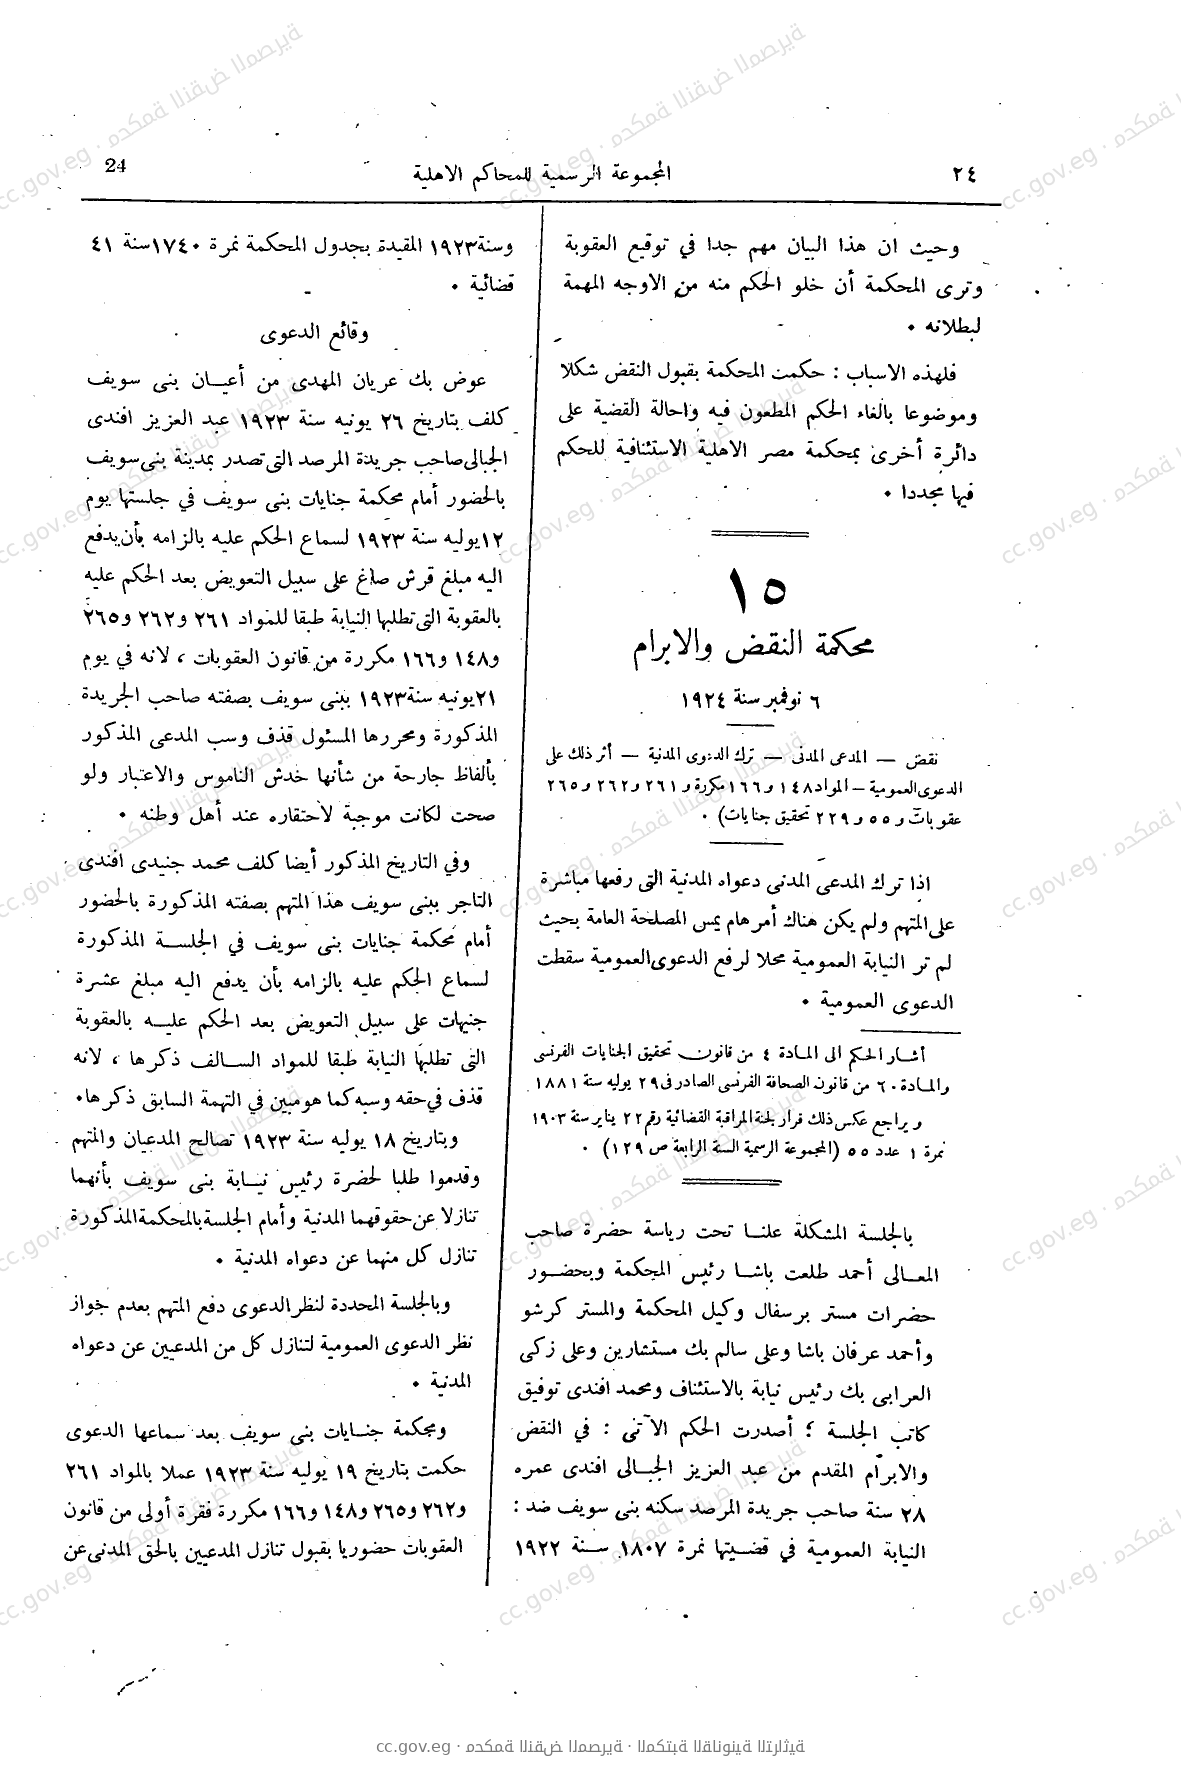 ٢٤
المجموعة الرسمية للمحاكم الاهلية
24
وحيث ان هذا البيان مهم جدا في توقيع العقوبة
وترى المحكمة أن خلو الحكم منه من الاوجه المهمة
لبطلانه ٠
فلهذه الاسباب : حكمت المحكمة بقبول النقض شكلا
وموضوعا بالغاء الحكم المطعون فيه واحالة القضية على
دائرة أخرى بمحكمة مصر الاهلية الاستئنافية للحكم
فيها مجددا ٠
١٥
محكمة النقض والابرام
٦ نوفمبر سنة ١٩٢٤
نقض — المدعى المدنى — ترك الدعوى المدنية — أثر ذلك على
الدعوى العمومية — المواد ١٤٨ و ١٦٦ مكررة و ٢٦١ و ٢٦٢ و ٢٦٥
عقوبات و ٥٥ و ٢٢٩ تحقيق جنايات) ٠
اذا ترك المدعى المدنى دعواه المدنية التى رفعها مباشرة
على المتهم ولم يكن هناك أمر هام يمس المصلحة العامة بحيث
لم تر النيابة العمومية محلا لرفع الدعوى العمومية سقطت
الدعوى العمومية ٠
أشار الحكم الى المادة ٤ من قانون تحقيق الجنايات الفرنسى
والمادة ٦٠ من قانون الصحافة الفرنسى الصادر فى ٢٩ يوليه سنة ١٨٨١
ويراجع عكس ذلك قرار لجنة المراقبة القضائية رقم ٢٢ يناير سنة ١٩٠٣
نمرة ١ عدد ٥٥ (المجموعة الرسمية السنة الرابعة ص ١٢٩) ٠
بالجلسة المشكلة علنا تحت رياسة حضرة صاحب
المعالى أحمد طلعت باشا رئيس المحكمة وبحضور
حضرات مستر برسفال وكيل المحكمة والمستر كرشو
وأحمد عرفان باشا وعلى سالم بك مستشارين وعلى زكى
العرابى بك رئيس نيابة بالاستئناف ومحمد افندى توفيق
كاتب الجلسة ؛ أصدرت الحكم الآتى : في النقض
والابرام المقدم من عبد العزيز الجبالى افندى عمره
٢٨ سنة صاحب جريدة المرصد سكنه بنى سويف ضد :
النيابة العمومية في قضيتها نمرة ١٨٠٧ سنة ١٩٢٢
وسنة ١٩٢٣ المقيدة بجدول المحكمة نمرة ١٧٤٠ سنة ٤١
قضائية ٠
وقائع الدعوى
عوض بك عريان المهدى من أعيان بنى سويف
كلف بتاريخ ٢٦ يونيه سنة ١٩٢٣ عبد العزيز افندى
الجبالى صاحب جريدة المرصد التى تصدر بمدينة بنى سويف
بالحضور أمام محكمة جنايات بنى سويف في جلستها يوم
١٢ يوليه سنة ١٩٢٣ لسماع الحكم عليه بالزامه بأن يدفع
اليه مبلغ قرش صاغ على سبيل التعويض بعد الحكم عليه
بالعقوبة التى تطلبها النيابة طبقا للمواد ٢٦١ و٢٦٢ و٢٦٥
و١٤٨ و١٦٦ مكررة من قانون العقوبات ، لانه في يوم
٢١ يونيه سنة ١٩٢٣ ببنى سويف بصفته صاحب الجريدة
المذكورة ومحررها المسئول قذف وسب المدعى المذكور
بألفاظ جارحة من شأنها خدش الناموس والاعتبار ولو
صحت لكانت موجبة لاحتقاره عند أهل وطنه ٠
وفي التاريخ المذكور أيضا كلف محمد جنيدى افندى
التاجر ببنى سويف هذا المتهم بصفته المذكورة بالحضور
أمام محكمة جنايات بنى سويف في الجلسة المذكورة
لسماع الحكم عليه بالزامه بأن يدفع اليه مبلغ عشرة
جنيهات على سبيل التعويض بعد الحكم عليه بالعقوبة
التى تطلبها النيابة طبقا للمواد السالف ذكرها ، لانه
قذف في حقه وسبه كما هو مبين في التهمة السابق ذكرها ٠
وبتاريخ ١٨ يوليه سنة ١٩٢٣ تصالح المدعيان والمتهم
وقدموا طلبا لحضرة رئيس نيابة بنى سويف بأنهما
تنازلا عن حقوقهما المدنية وأمام الجلسة بالمحكمة المذكورة
تنازل كل منهما عن دعواه المدنية ٠
وبالجلسة المحددة لنظر الدعوى دفع المتهم بعدم جواز
نظر الدعوى العمومية لتنازل كل من المدعيين عن دعواه
المدنية ٠
ومحكمة جنايات بنى سويف بعد سماعها الدعوى
حكمت بتاريخ ١٩ يوليه سنة ١٩٢٣ عملا بالمواد ٢٦١
و٢٦٢ و٢٦٥ و١٤٨ و١٦٦ مكررة فقرة أولى من قانون
العقوبات حضوريا بقبول تنازل المدعيين بالحق المدنى عن
cc.gov.eg · محكمة النقض المصرية · المكتبة القانونية التراثية